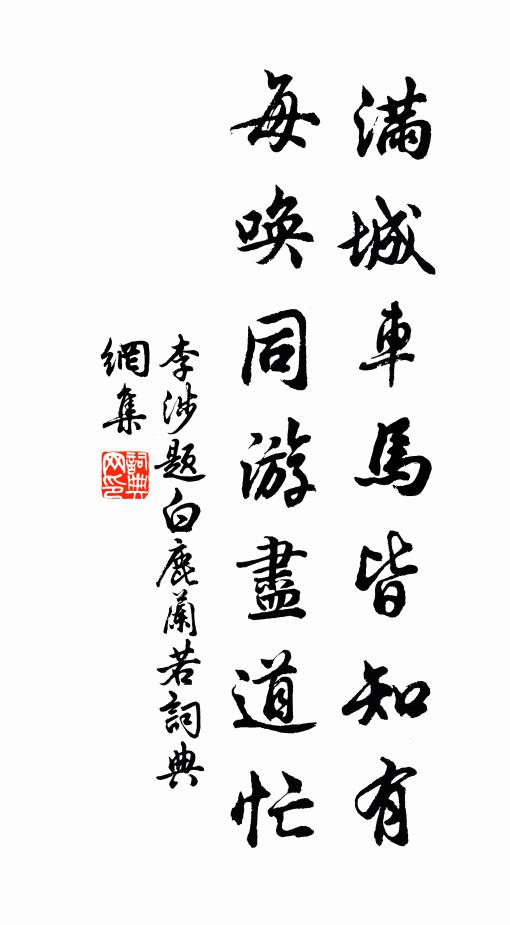 滿城車馬皆知有
每喚同游盡道忙
李涉題白鹿蘭若詞典
網集
詞典網印